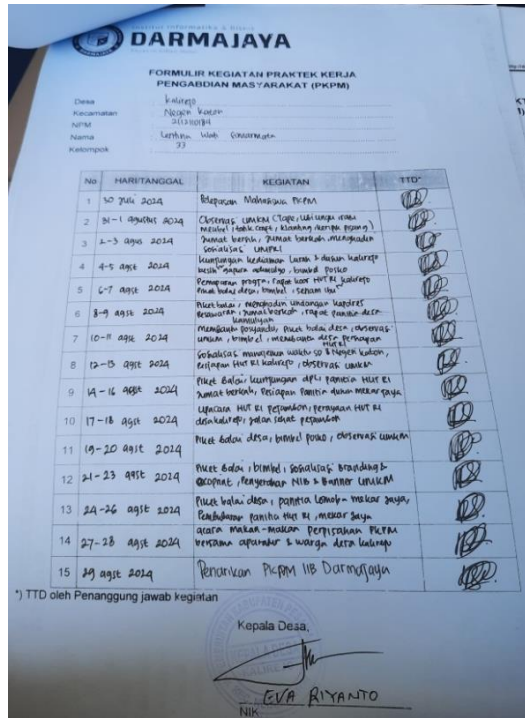 Institut Informatika & Bisnis
DARMAJAYA
FORMULIR KEGIATAN PRAKTEK KERJA
PENGABDIAN MASYARAKAT (PKPM)
Desa : kalirejo
Kecamatan : Negeri Katon
NPM
Nama
Kelompok : 33
No HARI/TANGGAL KEGIATAN TTD*
1 30 Juli 2024 Pelepasan Mahasiswa PKPM
2 31-1 agustus 2024 Observasi UMKM (Tape, ubi ungu
mebel, klanting, keripik pisang)
3 2-3 agus 2024 Jumat bersih, Jumat berkah, menghadiri
sosialisasi UMKM
4 4-5 agst 2024 kunjungan kediaman Lurah & dusun kalirejo
bersih gapura, bimbel posko
5 6-7 agst 2024 Pemaparan progja, rapat HUT RI kalirejo
Piket balai desa, bimbel, senam ibu
6 8-9 agst 2024 Piket balai, menghadiri undangan kapolres
Pesawaran, Jumat berkah, rapat panitia desa
7 10-11 agst 2024 Membantu posyandu, Piket balai desa, observasi
umkm, bimbel, membantu desa persiapan
HUT RI
8 12-13 agst 2024 Sosialisasi manajemen waktu SD 8 Negeri katon,
Persiapan HUT RI kalirejo, observasi UMKM
9 14-16 agst 2024 Piket Balai kunjungan dpl, panitia HUT RI
Jumat berkah, Persiapan Panitia dusun mekar jaya
10 17-18 agst 2024 Upacara HUT RI, perayaan HUT RI
desa kalirejo, jalan sehat
11 19-20 agst 2024 Piket balai desa, bimbel posko, observasi umkm
12 21-23 agst 2024 Piket Balai, bimbel, Sosialisasi Branding &
ecoprint, Penyerahan NIB & Banner UMKM
13 24-26 agst 2024 Piket balai desa, panitia Lomba mekar jaya,
Pembubaran panitia HUT RI, mekar jaya
14 27-28 agst 2024 acara makan-makan Perpisahan PKPM
bersama aparatur & warga desa kalirejo
15 29 agst 2024 Penarikan PKPM IIB Darmajaya
*) TTD oleh Penanggung jawab kegiatan
Kepala Desa,
EVA RIYANTO
NIK